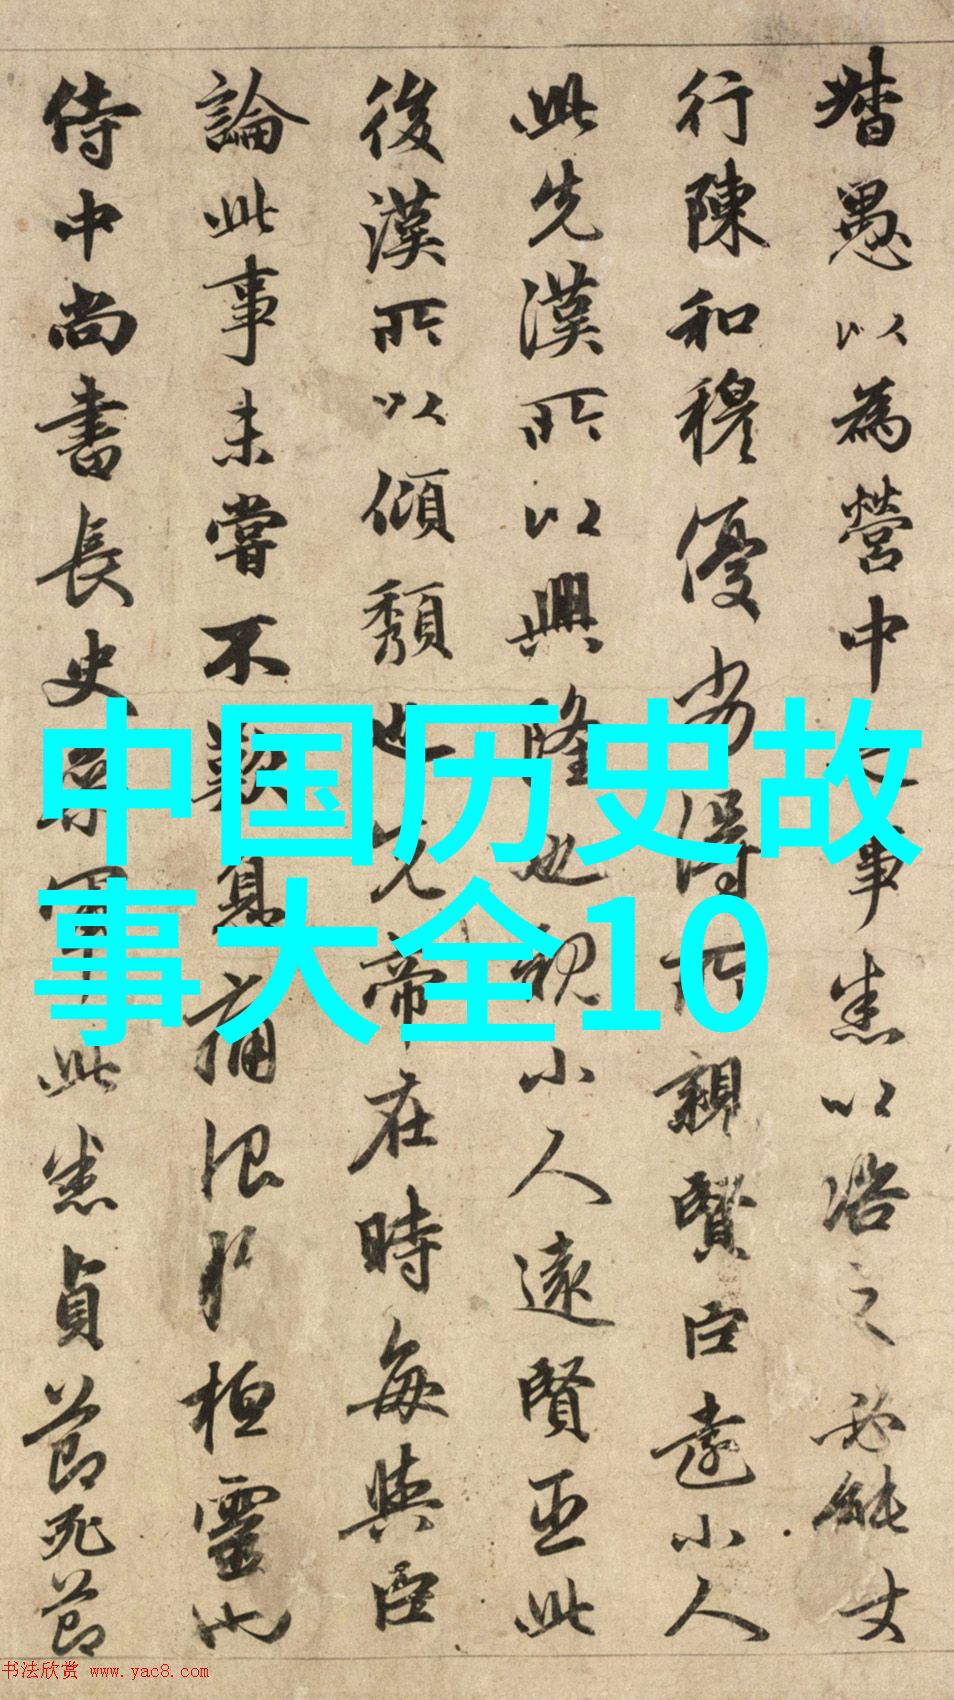 督愚以為營中之事悉以咨之必能丈
行陳和穆優劣得所親賢臣遠小人
此先漢所以興隆也親小人遠賢臣此
後漢所以傾頹也先帝在時每與臣
論此事未嘗不歎息痛恨於桓靈也
侍中尚書長史參軍此悉貞節死節
中国历史故
事大全10
书法欣赏 www.yac8.com